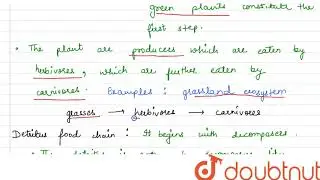 green plants constitute the
first step.
• The plant are producers which are eaten by
herbivores, which are further eaten by
carnivores. Examples : grassland ecosystem
grasses → herbivores → carnivores
Detritus food chain : It begins with decomposers.
doubtnut